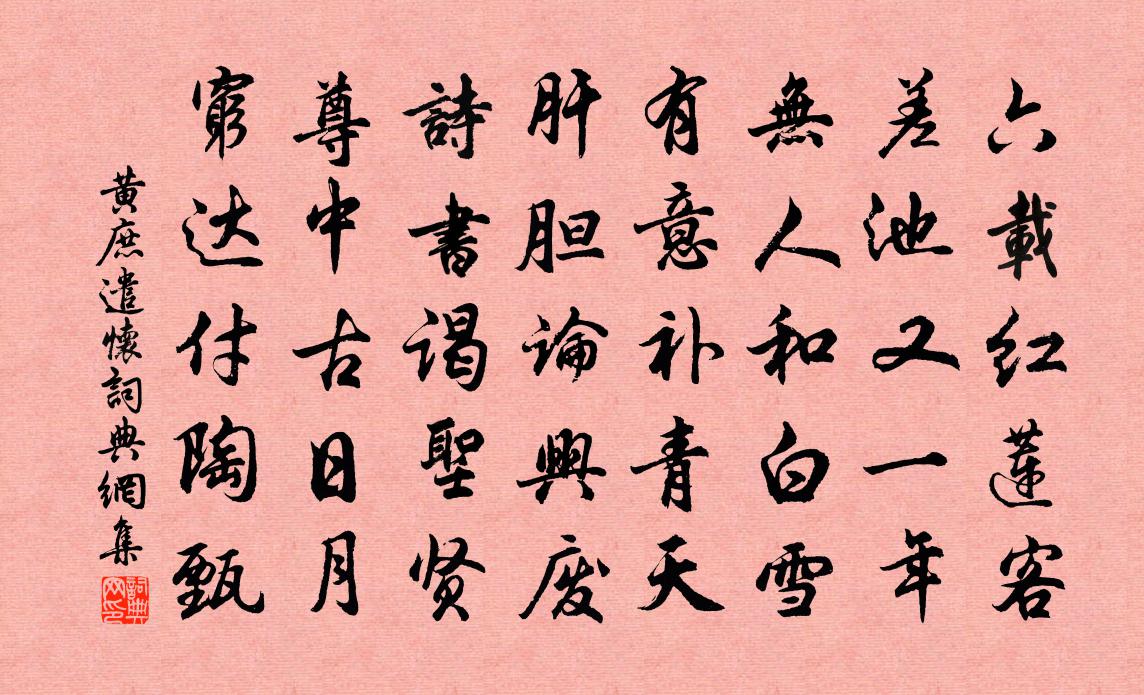 六載红蓮客
差池又一年
無人和白雪
有意补青天
肝胆論興废
詩書谒聖贤
尊中古日月
窮达付陶甄
黄庶遣懷詞典網集
詞典网印